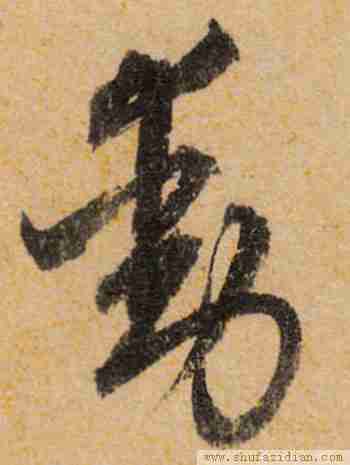 動
www.shufazidian.com